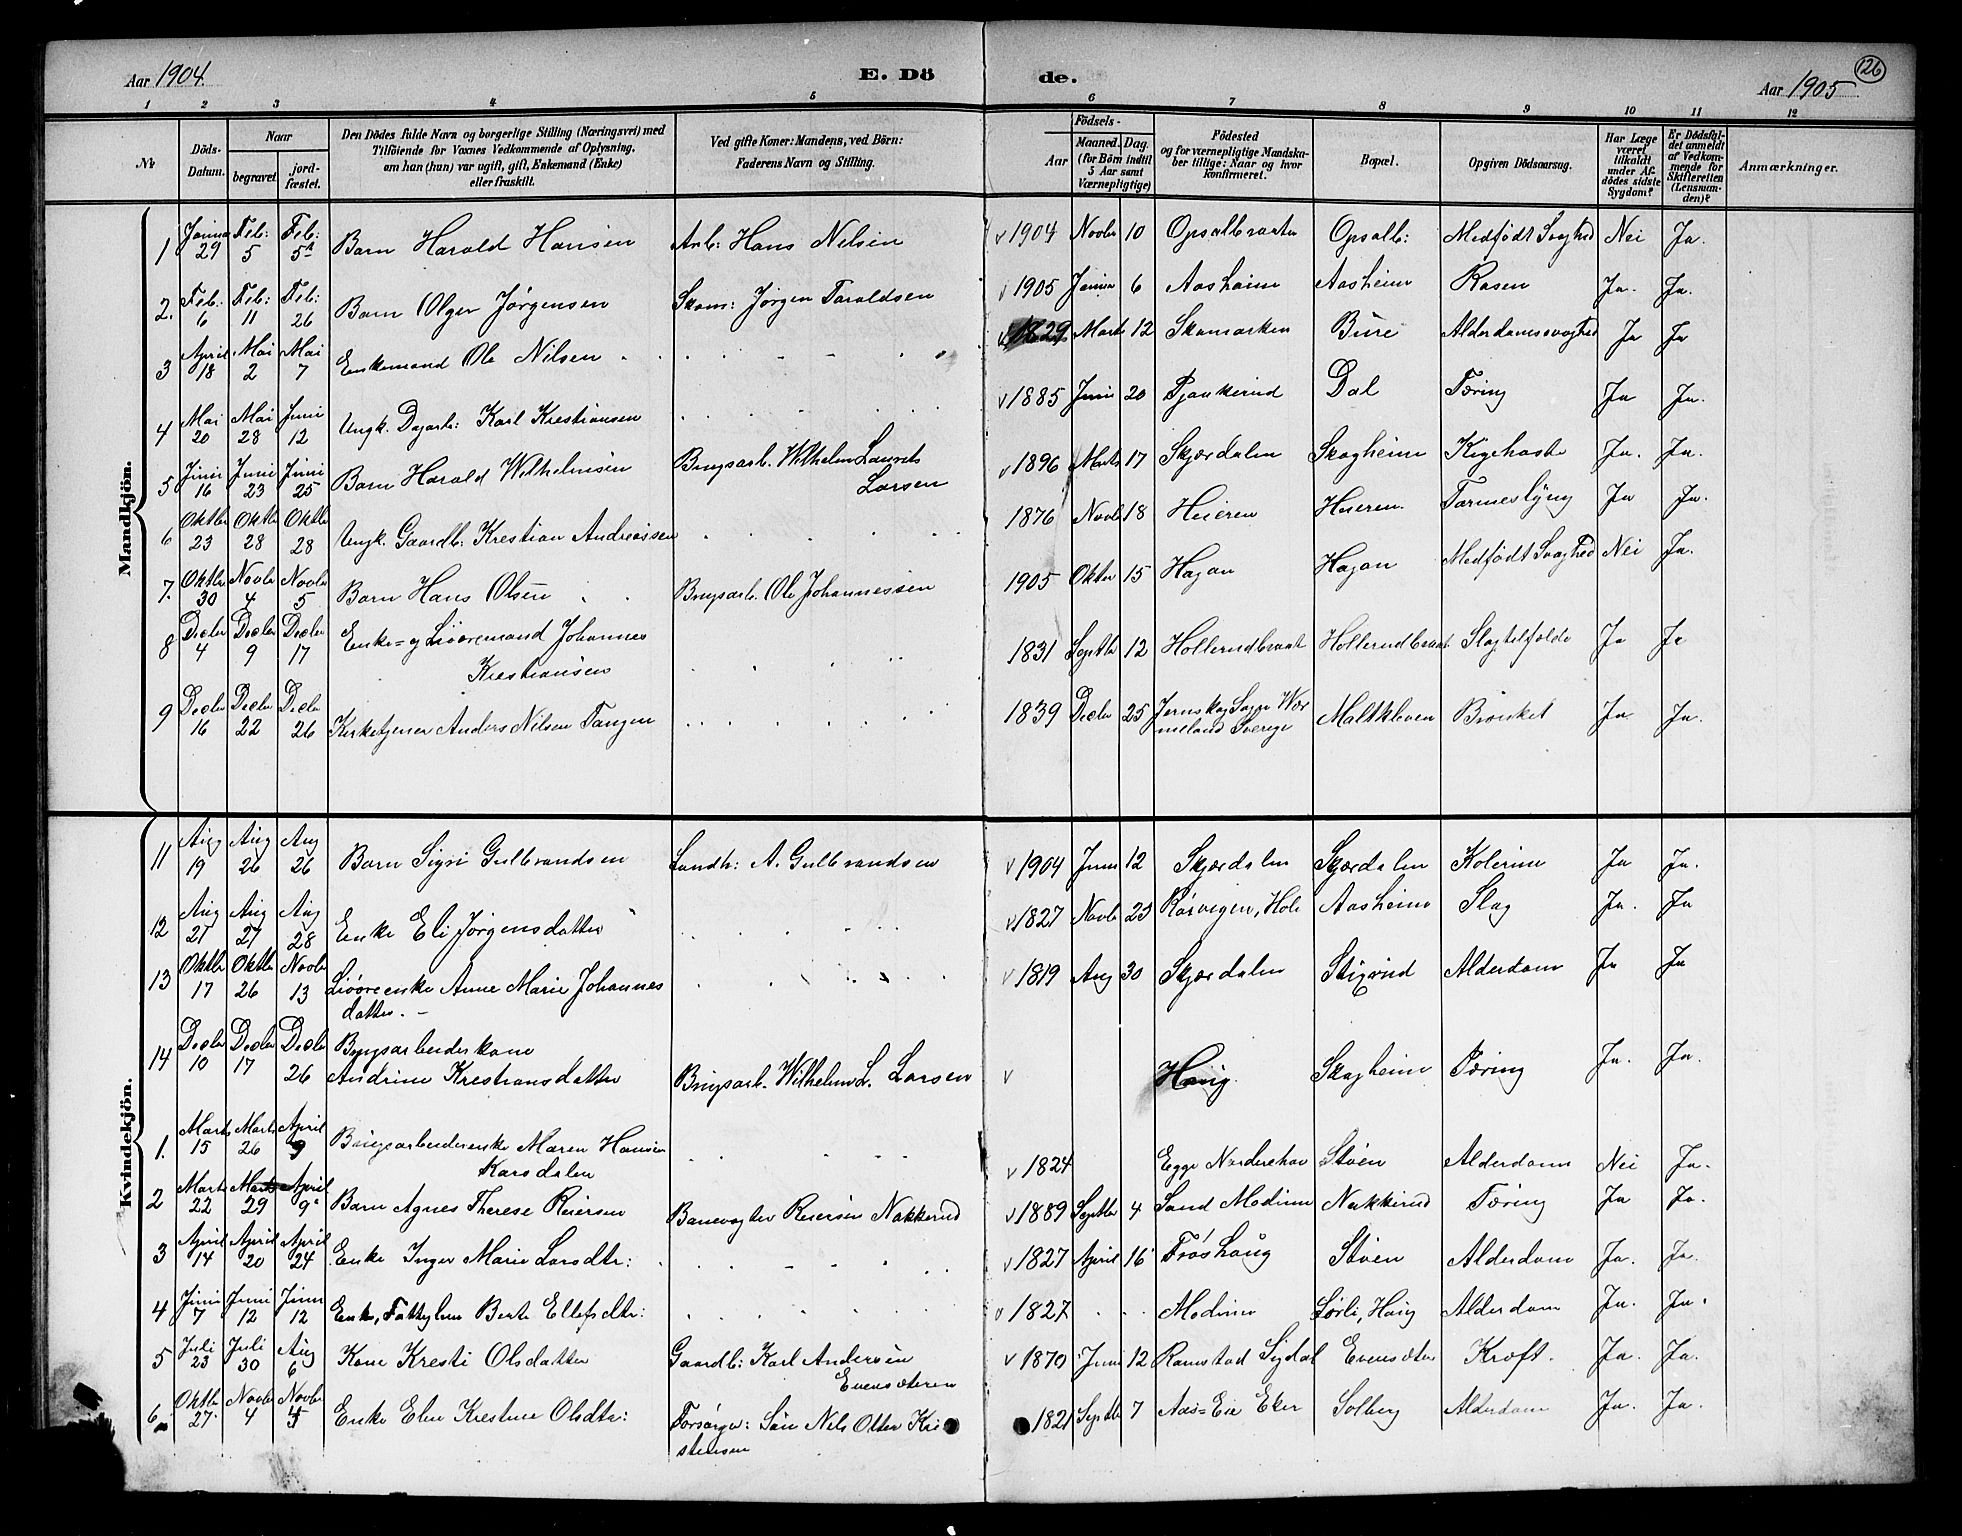 Aar 1904.
E. Dö
de.
Aar 1905
126
1 2 3 4 5 6 7 8 9 10 11 12
Nr
Döds-
Datum.
Naar
begravet.
jord-
fæstet.
Den Dödes fulde Navn og borgerlige Stilling (Næringsvei) med
Tilföiende for Voxnes Vedkommende af Oplysning,
om han (hun) var ugift, gift, Enkemand (Enke)
eller fraskilt.
Ved gifte Koner: Mandens, ved Börn:
Faderens Navn og Stilling.
Födsels-
Aar
Maaned.
(for Börn indtil
5 Aar samt
Værnepligtige)
Dag.
Födested
og for værnepligtige Mandska-
ber tillige: Naar og hvor
konfirmeret.
Bopæl.
Opgiven Dödsaarsag.
Har Læge
været
tilkaldt
under Af-
dödes sidste
Sygdom?
Er Dödsfal-
det anmeldt
af Vedkom-
mende for
Skifteretten
(Lensman-
den)?
Anmærkninger.
Mandkjön.
1 Janua 29 Feb: 5 Feb: 5 Barn Harald Hansen Arb: Hans Nilsen v 1904 Novbr 10 Opsalbraaten Opsalb: Medfödt Svaghed Nei Ja.
2. Feb: 6 Feb: 11 Feb: 26 Barn Olger Jörgensen Skom: Jörgen Taraldsen v 1905 Janua 6 Aasheim Aasheim Rosen Ja. Ja.
3 April 18 Mai 2 Mai 7 Enkemand Ole Nilsen v 1829 Marts 12 Skamarken Bure Alderdomssvaghed Ja Ja
4 Mai 20 Mai 28 Juni 12 Ungk. Dagarb: Karl Kristiansen v 1885 Juni 20 Pjaakerud Dal Tæring Ja Ja.
5 Juni 16 Juni 23 Juni 25 Barn Harald Wilhelmsen Brugsarb. Wilhelm Laurits
Larsen v 1896 Marts 17 Skjærdalen Skogheim Kighoste Ja. Ja.
6 Oktbr 23 Oktbr 28 Oktbr 28 Ungk. Gaardb: Krestian Andreassen 1876 Novbr 18 Heieren Heieren. Tarmeslyng Ja Ja.
7. Oktbr 30 Novbr 4 Novbr 5 Barn Hans Olsen Brugsarb. Ole Johannessen 1905 Oktbr 15 Hagan Hagan Medfödt Svaghed Nei Ja.
8 Decbr 4 Decbr 9 Decbr 17 Enke- og Livöremand Johannes
Kristiansen 1831 Septbr 12 Hollerudbraat Hollerudbraat Slagtilfælde Ja Ja
9 Decbr 16 Decbr 22 Decbr 26 Kirketjener Anders Nilsen Tangen 1839 Decbr 25 Jernskog Sogn Wær
meland Sverige Maltkleven Bronket Ja Ja.
Kvindekjön.
11 Aug 19 Aug 26 Aug 26 Barn Sigri Gulbrandsen Landh: A. Gulbrandsen v 1904 Juni 12 Skjærdalen Skjærdalen Kolerine Ja Ja.
12 Aug 21 Aug 27 Aug 28 Enke Eli Jörgensdatter v 1827 Novbr 23 Rörvigen, Hole Aasheim Slag Ja. Ja
13 Oktbr 17 Oktbr 26 Novbr 13 Livöreenke Anne Marie Johannes
datter. v 1819 Aug 30 Skjærdalen Stixrud Alderdom Ja Ja
14 Decbr 10 Decbr 17 Decbr 26 Brugsarbeiderkone
Andrine Krestiansdatter Brugsarb. Wilhelm L. Larsen v Haug. Skogheim Tæring Ja. Ja.
1. Marts 15 Marts 26 April 9 Brugsarbeiderenke Maren Hansen
Karsdalen v 1824 Egge Norderhov Stöen Alderdom Nei Ja.
2 Marts 22 Marts 29 April 9 Barn Agnes Therese Reiersen Banevogter Reiersen Nakkerud v 1889 Septbr 4 Sand Modum Nakkerud Tæring Ja Ja.
3 April 14 April 20 April 24 Enke Inger Marie Larsdtr: v 1827 April 16 Fröshaug Stöen Alderdom Ja. Ja.
4 Juni 7 Juni 12 Juni 12 Enke, Fattiglem Berte Ellefsdtr: v 1827 Modum Sörli, Haug Alderdom Ja. Ja.
5 Juli 23 Juli 30 Aug 6 Kone Kresti Olsdatter Gaardb: Karl Andersen
Evensæteren v 1870 Juni 12 Ramstad Sigdal Evensæter Kræft. Ja. Ja.
6 Oktbr 27. Novbr 4 Novbr 5 Enke Elen Krestine Olsdtr: Forsörger: Sön Nils Otter Kri
stensen 1821 Septbr 7 Aas=Eie Eker Solberg Alderdom Ja. Ja.